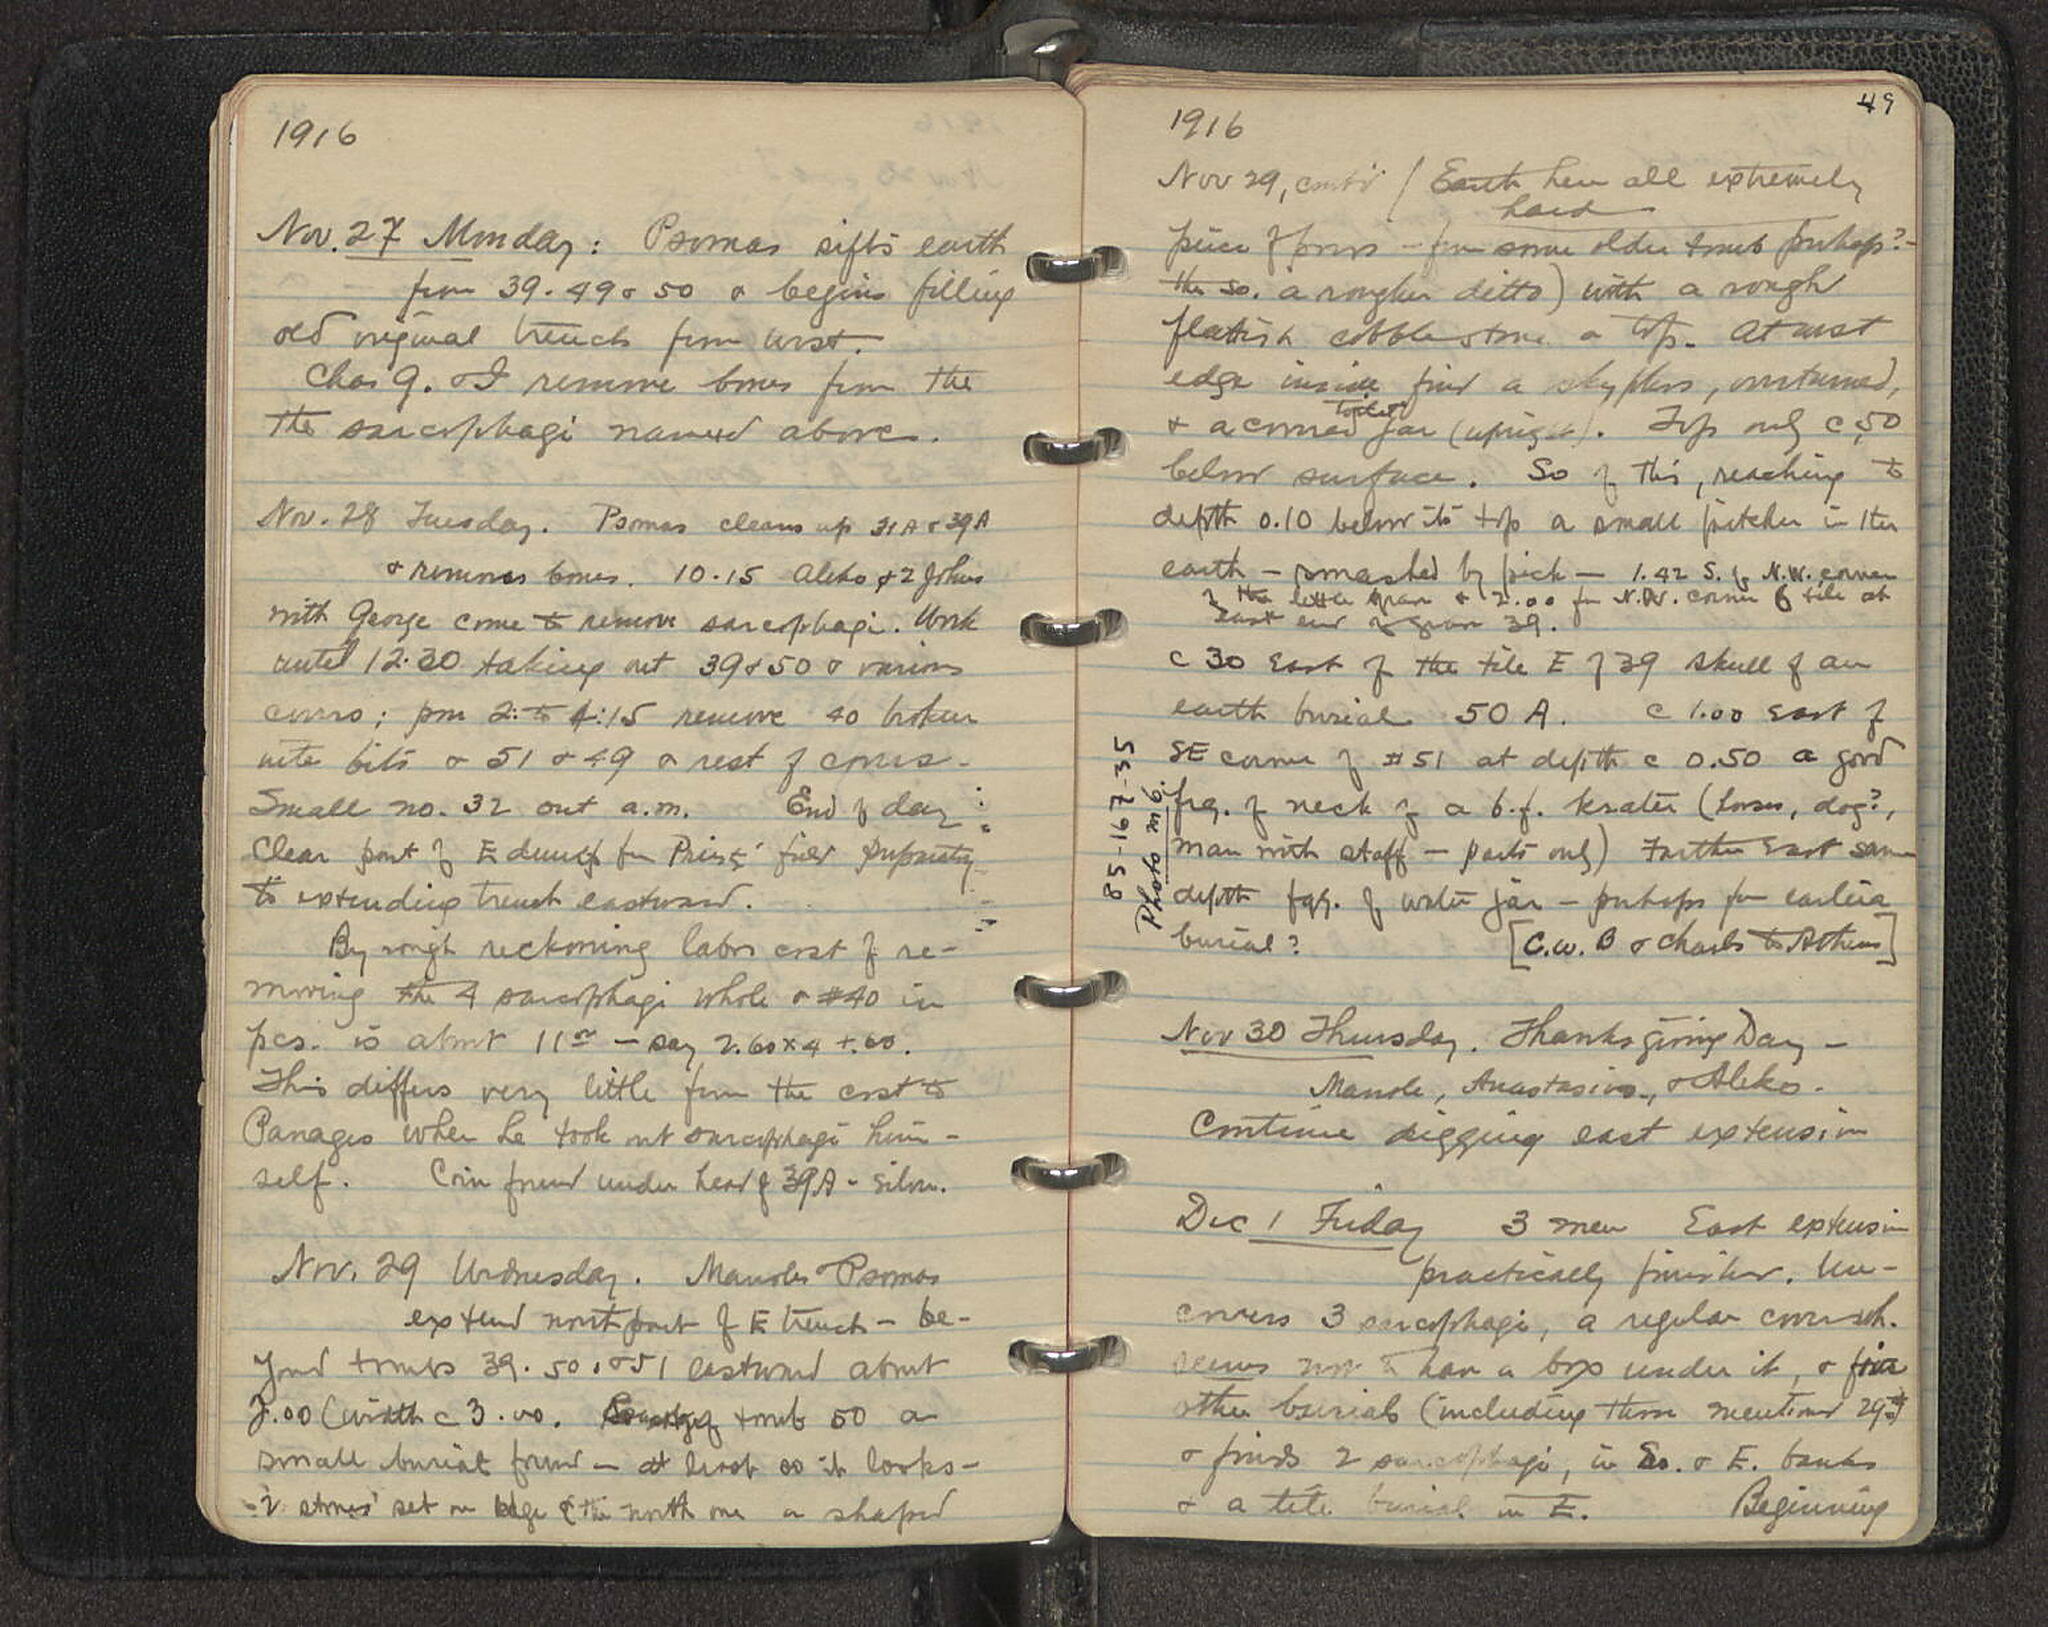 1916
Nov. 27 Monday: Psomas sifts earth
from 39. 49 & 50 & begins filling
old original trench from west.
Chas G. & I remove bones from the
the sarcophagi named above.
Nov. 28 Tuesday. Psomas cleans up 31A & 39A
& removes bones. 10.15 Aleko & 2 Johns
with George come to remove sarcophagi. Work
until 12.30 taking out 39 & 50 & various
covers; pm 2: to 4:15 remove 40 broken
into bits & 51 & 49 & rest of covers.
Small no. 32 out a.m. End of day:
Clear part of E dump for Priests' field preparatory
to extending trench eastward.
By rough reckoning labor cost of re-
moving the 4 sarcophagi whole & #40 in
pcs. is about 11 00 - say 2.60 x 4 + .60.
This differs very little from the cost to
Panages when he took out sarcophagi him-
self. Coin found under head of 39A - silver.
Nov. 29 Wednesday. Manoles & Psomas
extend north part of E trench - be-
yond tombs 39. 50. & 51 eastward about
2.00 (width c 3.00. tomb 50 a
small burial found - at least so it looks -
2 stones set on edge (the north one a shaped
49
1916
Nov 29, cont'd / Earth here all extremely
hard
piece of poros - from some older tomb perhaps? -
the so. a rougher ditto) with a rough
flattish cobblestone on top. At west
edge inside find a skyphos, overturned,
& a covered toilet jar (upright). Top only c .50
below surface. So of this, reaching to
depth 0.10 below its top a small pitcher in the
earth - smashed by pick - 1.42 S. of N.W. corner
of the little grave & 2.00 fm N.W. corner of tile at
East end of grave 39.
c 30 East of the tile E of 39 skull of an
earth burial 50 A. c 1.00 east of
SE corner of #51 at depth c 0.50 a good
frg. of neck of a b.f. krater (horse, dog?,
man with staff - parts only) Farther East same
depth fgs. of water jar - perhaps fm earlier
burial? [C.W.B & Charles to Athens]
85-167-35
Photo m 6.
Nov 30 Thursday. Thanksgiving Day -
Manole, Anastasios, & Aleko.
Continue digging east extension
Dec 1 Friday 3 men East extension
practically finished. Un-
covers 3 sarcophagi, a regular cover wh.
seems not to have a box under it, & five
other burials (including those mentioned 29th)
& finds 2 sarcophagi, in So. & E. banks
& a tile burial in E. Beginning